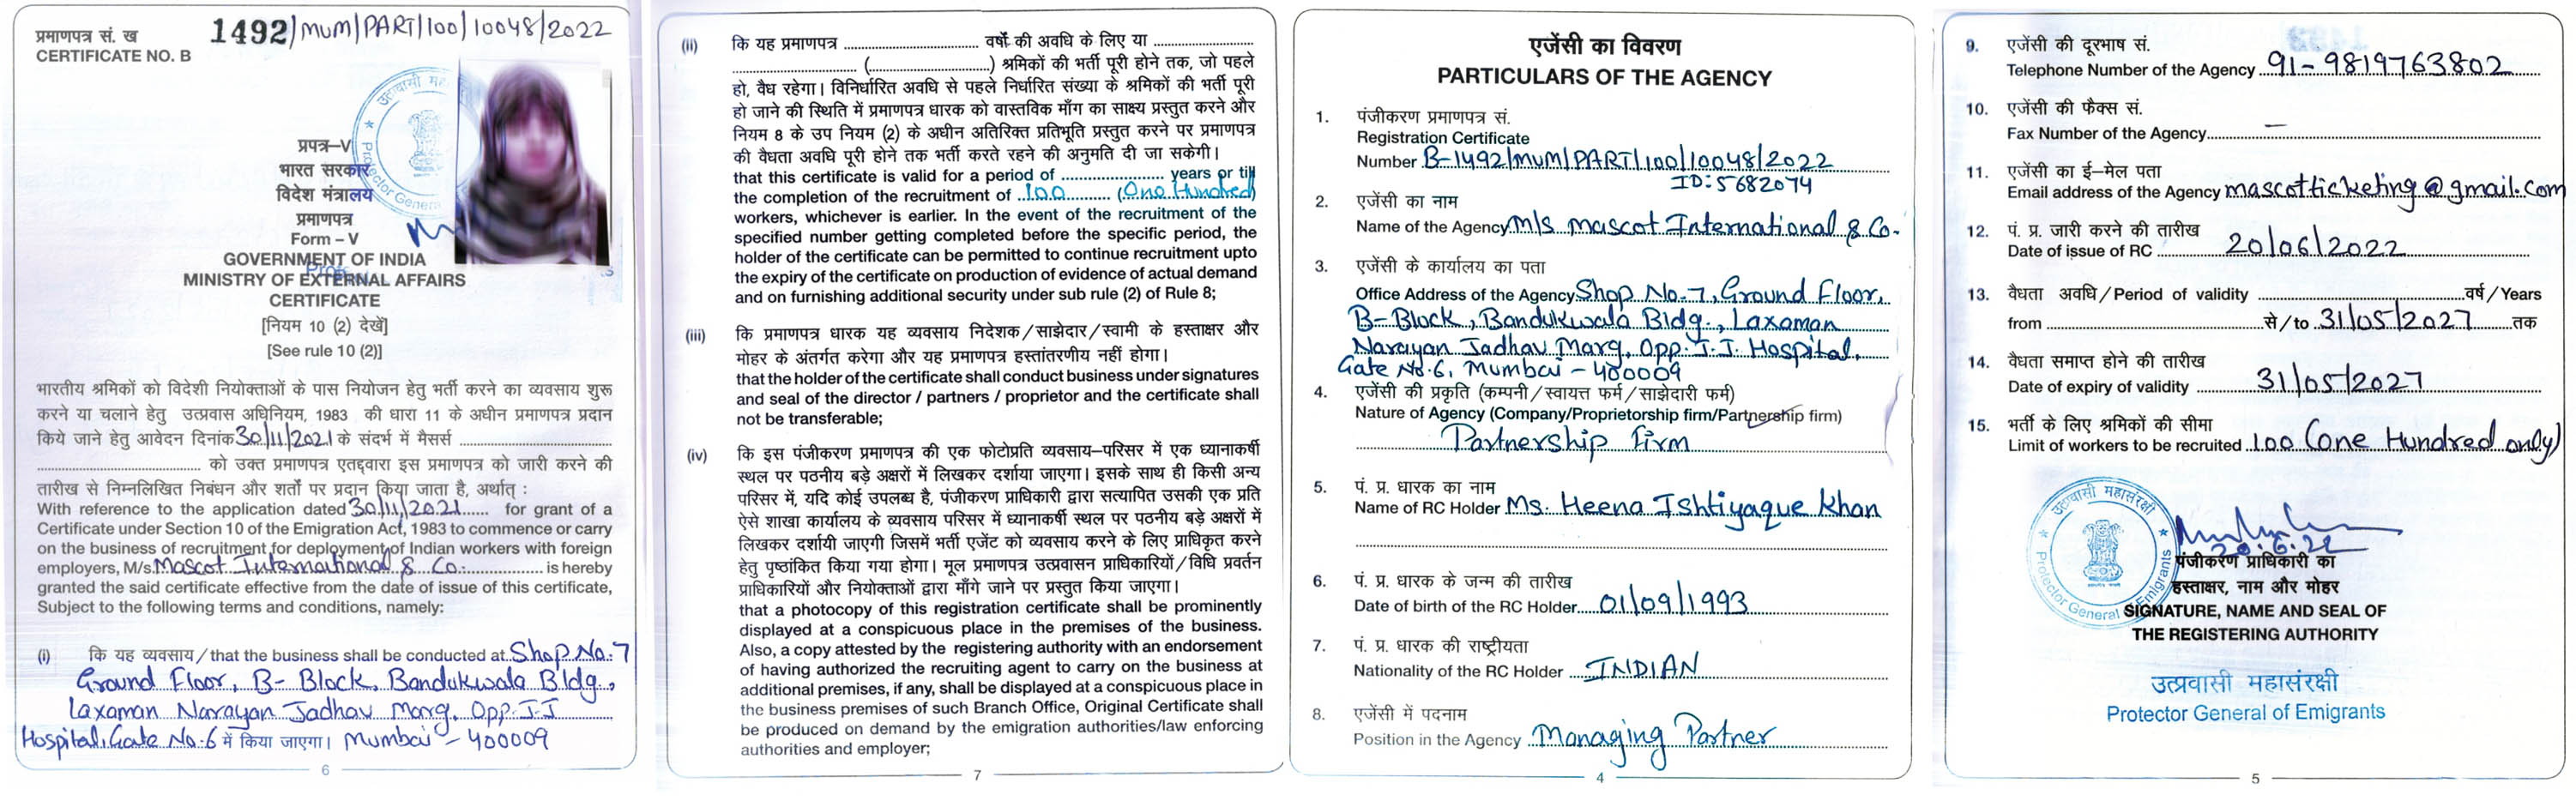 प्रमाणपत्र सं. ख
CERTIFICATE NO. B
1492/MUM/PART/100/10048/2022
प्रपत्र–V
भारत सरकार
विदेश मंत्रालय
प्रमाणपत्र
Form – V
GOVERNMENT OF INDIA
MINISTRY OF EXTERNAL AFFAIRS
CERTIFICATE
[नियम 10 (2) देखें]
[See rule 10 (2)]
भारतीय श्रमिकों को विदेशी नियोक्ताओं के पास नियोजन हेतु भर्ती करने का व्यवसाय शुरू
करने या चलाने हेतु उत्प्रवास अधिनियम, 1983 की धारा 11 के अधीन प्रमाणपत्र प्रदान
किये जाने हेतु आवेदन दिनांक 30/11/2021 के संदर्भ में मैसर्स ..............................
.............................. को उक्त प्रमाणपत्र एतद्द्वारा इस प्रमाणपत्र को जारी करने की
तारीख से निम्नलिखित निबंधन और शर्तों पर प्रदान किया जाता है, अर्थात् :
With reference to the application dated 30/11/2021 for grant of a
Certificate under Section 10 of the Emigration Act, 1983 to commence or carry
on the business of recruitment for deployment of Indian workers with foreign
employers, M/s. Mascot International & Co. is hereby
granted the said certificate effective from the date of issue of this certificate,
Subject to the following terms and conditions, namely:
(i) कि यह व्यवसाय/that the business shall be conducted at Shop No. 7
Ground Floor, B-Block, Bandukwala Bldg.,
Laxaman Narayan Jadhav Marg, Opp. J.J
Hospital, Gate No. 6 में किया जाएगा। Mumbai – 400009
6
(ii) कि यह प्रमाणपत्र .............................. वर्षों की अवधि के लिए या ....................
.............................. (..............................) श्रमिकों की भर्ती पूरी होने तक, जो पहले
हो, वैध रहेगा। विनिर्धारित अवधि से पहले निर्धारित संख्या के श्रमिकों की भर्ती पूरी
हो जाने की स्थिति में प्रमाणपत्र धारक को वास्तविक माँग का साक्ष्य प्रस्तुत करने और
नियम 8 के उप नियम (2) के अधीन अतिरिक्त प्रतिभूति प्रस्तुत करने पर प्रमाणपत्र
की वैधता अवधि पूरी होने तक भर्ती करते रहने की अनुमति दी जा सकेगी।
that this certificate is valid for a period of .................... years or till
the completion of the recruitment of 100 (One Hundred)
workers, whichever is earlier. In the event of the recruitment of the
specified number getting completed before the specific period, the
holder of the certificate can be permitted to continue recruitment upto
the expiry of the certificate on production of evidence of actual demand
and on furnishing additional security under sub rule (2) of Rule 8;
(iii) कि प्रमाणपत्र धारक यह व्यवसाय निदेशक/साझेदार/स्वामी के हस्ताक्षर और
मोहर के अंतर्गत करेगा और यह प्रमाणपत्र हस्तांतरणीय नहीं होगा।
that the holder of the certificate shall conduct business under signatures
and seal of the director / partners / proprietor and the certificate shall
not be transferable;
(iv) कि इस पंजीकरण प्रमाणपत्र की एक फोटोप्रति व्यवसाय–परिसर में एक ध्यानाकर्षी
स्थल पर पठनीय बड़े अक्षरों में लिखकर दर्शाया जाएगा। इसके साथ ही किसी अन्य
परिसर में, यदि कोई उपलब्ध है, पंजीकरण प्राधिकारी द्वारा सत्यापित उसकी एक प्रति
ऐसे शाखा कार्यालय के व्यवसाय परिसर में ध्यानाकर्षी स्थल पर पठनीय बड़े अक्षरों में
लिखकर दर्शायी जाएगी जिसमें भर्ती एजेंट को व्यवसाय करने के लिए प्राधिकृत करने
हेतु पृष्ठांकित किया गया होगा। मूल प्रमाणपत्र उत्प्रवासन प्राधिकारियों/विधि प्रवर्तन
प्राधिकारियों और नियोक्ताओं द्वारा माँगे जाने पर प्रस्तुत किया जाएगा।
that a photocopy of this registration certificate shall be prominently
displayed at a conspicuous place in the premises of the business.
Also, a copy attested by the registering authority with an endorsement
of having authorized the recruiting agent to carry on the business at
additional premises, if any, shall be displayed at a conspicuous place in
the business premises of such Branch Office, Original Certificate shall
be produced on demand by the emigration authorities/law enforcing
authorities and employer;
7
एजेंसी का विवरण
PARTICULARS OF THE AGENCY
1. पंजीकरण प्रमाणपत्र सं.
Registration Certificate
Number B-1492/MUM/PART/100/10048/2022
ID: 5682074
2. एजेंसी का नाम
Name of the Agency M/s Mascot International & Co.
3. एजेंसी के कार्यालय का पता
Office Address of the Agency Shop No-7, Ground Floor,
B-Block, Bandukwala Bldg., Laxaman
Narayan Jadhav Marg, Opp. J.J. Hospital,
Gate No. 6, Mumbai – 400009
4. एजेंसी की प्रकृति (कम्पनी/स्वायत्त फर्म/साझेदारी फर्म)
Nature of Agency (Company/Proprietorship firm/Partnership firm)
Partnership Firm
5. पं. प्र. धारक का नाम
Name of RC Holder Ms. Heena Ishtiyaque Khan
6. पं. प्र. धारक के जन्म की तारीख
Date of birth of the RC Holder 01/09/1993
7. पं. प्र. धारक की राष्ट्रीयता
Nationality of the RC Holder INDIAN
8. एजेंसी में पदनाम
Position in the Agency Managing Partner
4
9. एजेंसी की दूरभाष सं.
Telephone Number of the Agency 91-9819763802
10. एजेंसी की फैक्स सं.
Fax Number of the Agency –
11. एजेंसी का ई–मेल पता
Email address of the Agency mascotticketing@gmail.com
12. पं. प्र. जारी करने की तारीख
Date of issue of RC 20/06/2022
13. वैधता अवधि/Period of validity .............................. वर्ष/Years
from .............................. से/to 31/05/2027 तक
14. वैधता समाप्त होने की तारीख
Date of expiry of validity 31/05/2027
15. भर्ती के लिए श्रमिकों की सीमा
Limit of workers to be recruited 100 (One Hundred only)
उत्प्रवासी महासंरक्षी
Protector General of Emigrants
20.6.22
पंजीकरण प्राधिकारी का
हस्ताक्षर, नाम और मोहर
SIGNATURE, NAME AND SEAL OF
THE REGISTERING AUTHORITY
उत्प्रवासी महासंरक्षी
Protector General of Emigrants
5